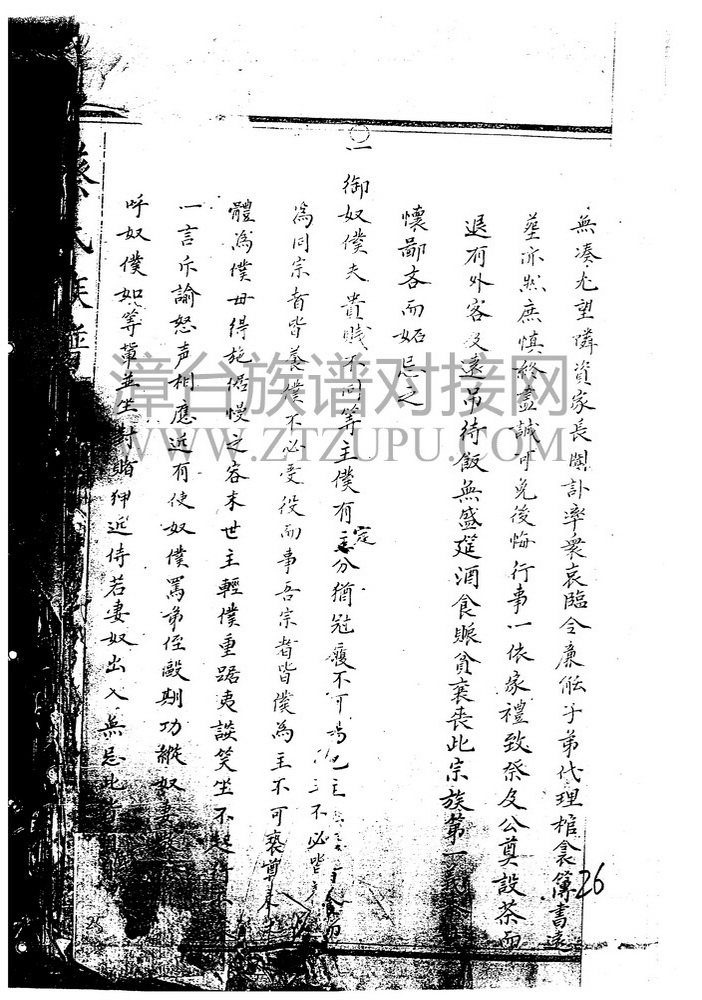 無凑尤望隣資家長聞訃率衆哀臨令廉能子弟代理棺衾簿書送
塋亦然庶慎終盡誠可免後悔行事一依家禮致祭及公奠設茶而
退有外客及遠吊待飯無盛筵酒食賑貧裹丧此宗族第一
懷鄙吝而妬忌之
一御奴僕夫貴賤不同等主僕有定分猶冠履不可
為同宗者皆義僕不必受役而事吾宗者皆僕為主不可褻尊
體為僕毋得施倨慢之容末世主輕僕重踞夷談笑坐不起
一言斥諭怒声相應近有使奴僕罵弟侄毆期功縱奴
呼奴僕如等輩並坐對賭狎近侍若妻奴出入無忌此
蔡氏族譜
漳台族谱对接网
WWW.ZTZUPU.COM
26